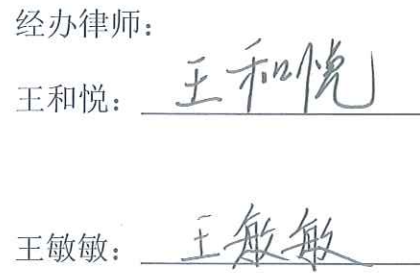 经办律师：
王和悦： 王和悦
王敏敏： 王敏敏